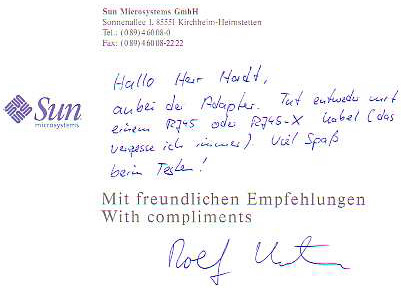 Sun Microsystems GmbH
Sonnenallee 1, 85551 Kirchheim-Heimstetten
Tel.: (089) 46008-0
Fax: (089) 46008-2222
Hallo Herr Hardt,
anbei der Adapter. Tut entweder mit
einem RJ45 oder RJ45-X Kabel (das
vergesse ich immer). Viel Spaß
beim Testen!
Sun
microsystems
Mit freundlichen Empfehlungen
With compliments
Rolf